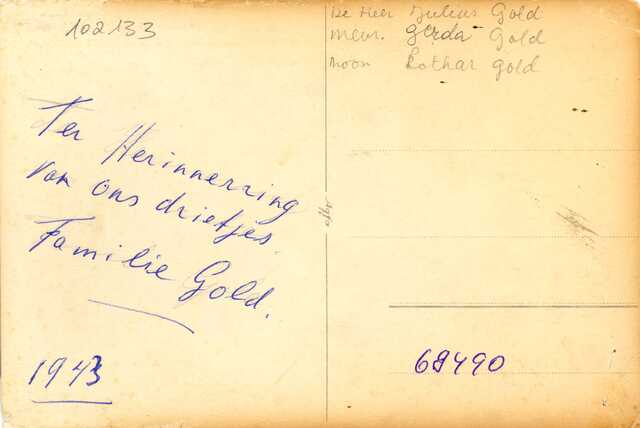 102133
Ter Herinnerring
van ons drietjes
Familie Gold.
1943
De Heer Julius Gold
mevr. Gerda Gold
zoon Lothar Gold
68490